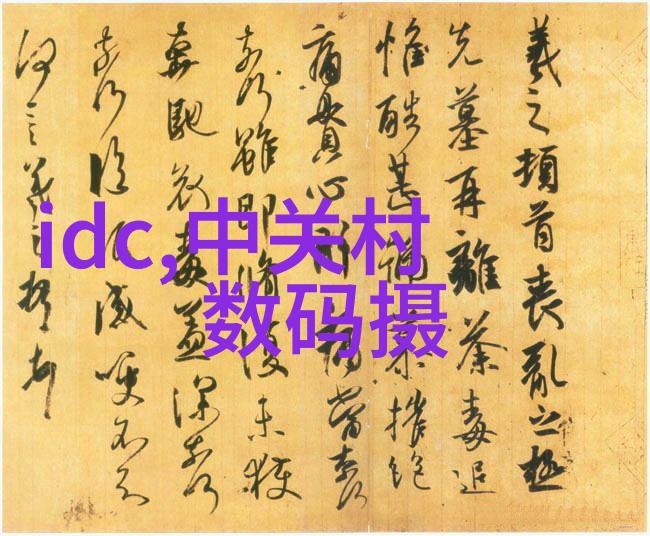 羲之頓首喪亂之極
先墓再離荼毒追
惟酷甚號慕摧絕
痛貫心肝痛當奈何
奈何雖即脩復未獲
奔馳哀毒益深奈何
奈何臨紙感哽不知
何言羲之頓首頓首
idc,中关村
数码摄